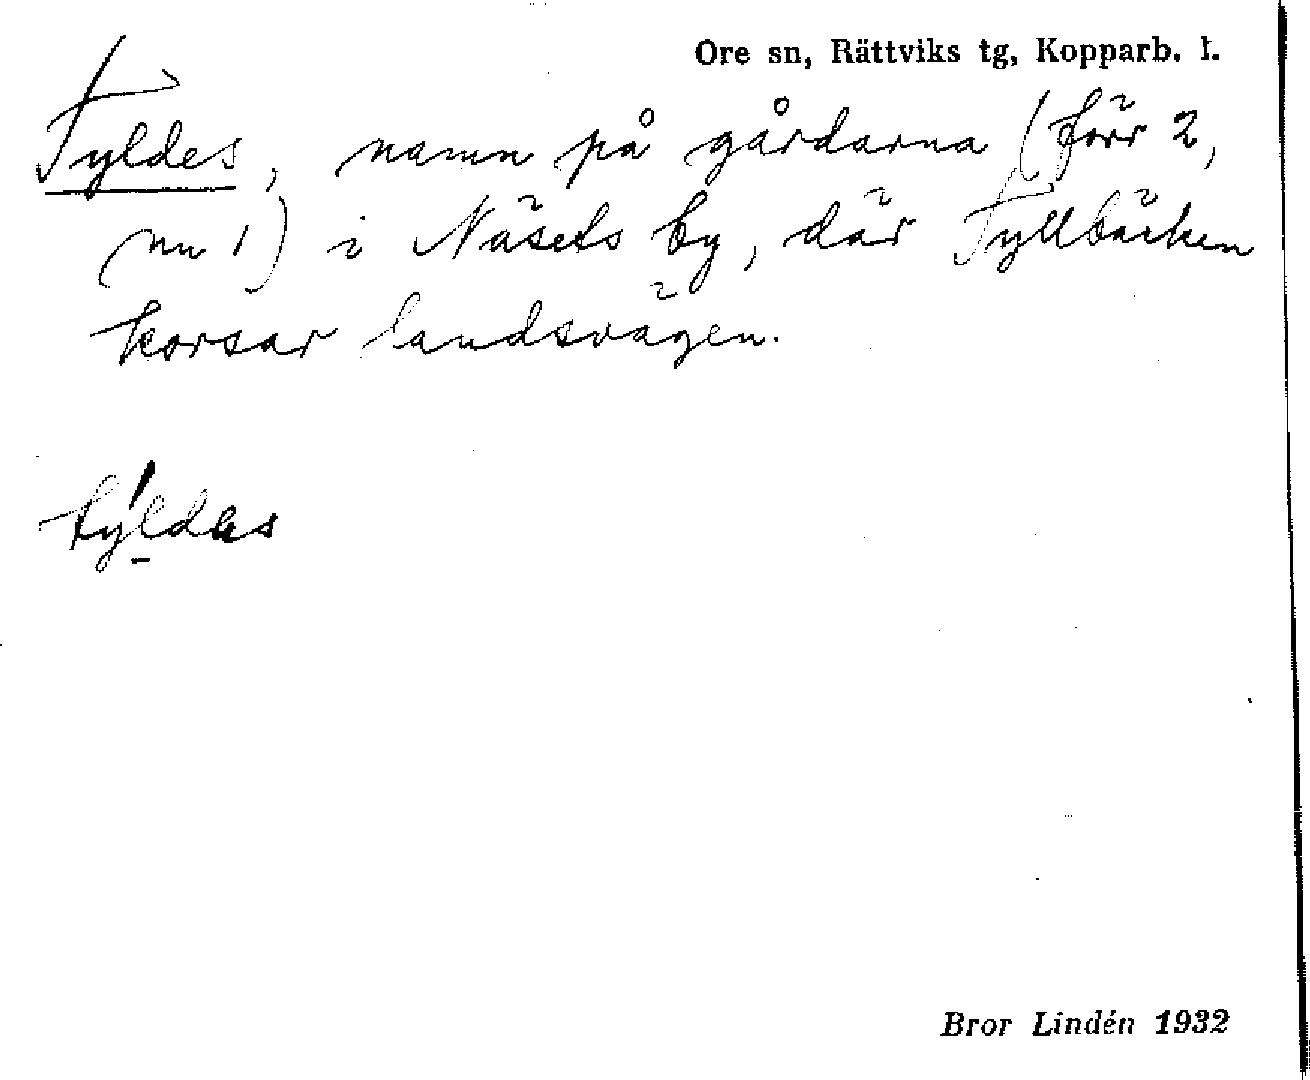 Ore sn, Rättviks tg, Kopparb. l.
Tyldes, namn på gårdarna (förr 2,
nu 1) i Näsets by, där Tyllbäcken
korsar landsvägen.
Bror Lindén 1932